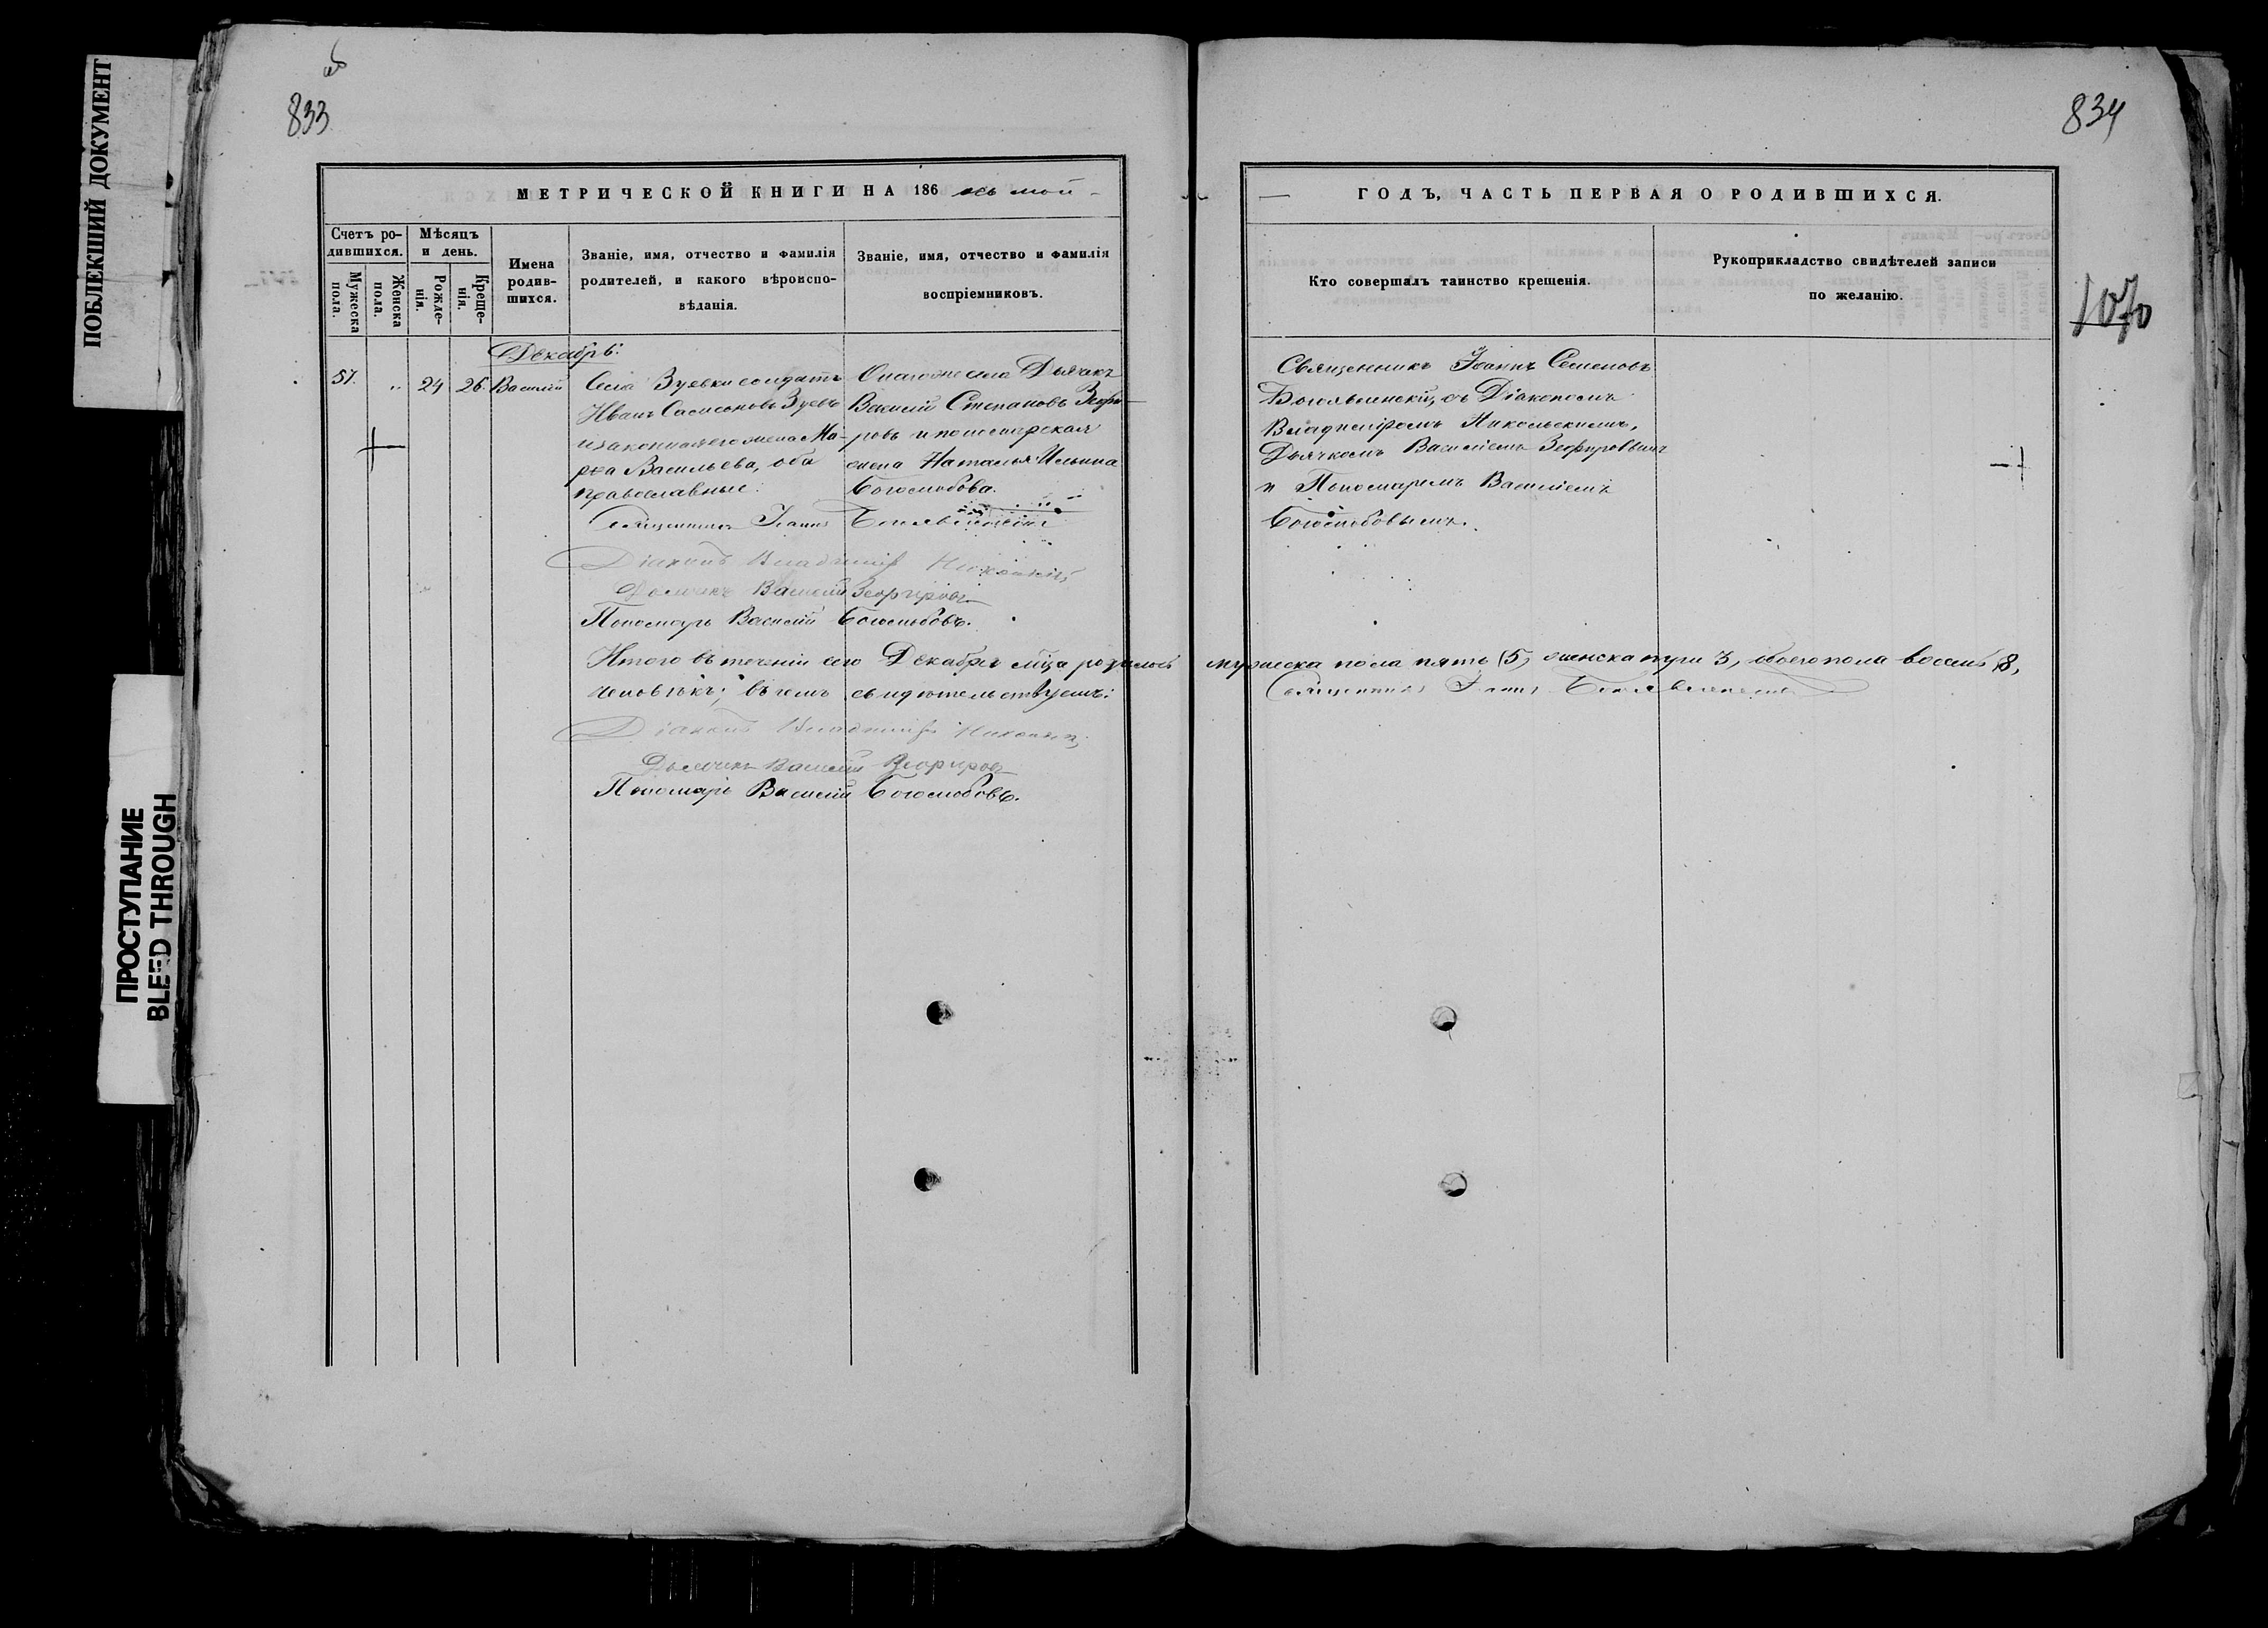 ПОБЛЕКШИЙ ДОКУМЕНТ
ПРОСТУПАНИЕ
BLEED THROUGH
об
833
МЕТРИЧЕСКОЙ КНИГИ НА 186 осьмой
Счетъ родившихся.
Мужеска пола.
Женска пола.
Мѣсяцъ и день.
Рожденія.
Крещенія.
Имена родившихся.
Званіе, имя, отчество и фамилія
родителей, и какого вѣроиспо-
вѣданія.
Званіе, имя, отчество и фамилія
воспріемниковъ.
Декабрь:
51. „ 24 26. Василій
Села Зуевки солдатъ
Иванъ Самсоновъ Зуевъ
и законная его жена Ма-
рѳа Васильева, оба
православные.
Онаго же села Дьячекъ
Василій Степановъ Зефи-
ровъ и пономарская
жена Наталья Ильина
Боголюбова.
Священникъ Іоаннъ Богоявленскій
Діаконъ Владиміръ Никольскій
Дьячекъ Василій Зефировъ
Пономарь Василій Боголюбовъ.
Итого въ теченіи сего Декабря мѣца родилось
человѣкъ; въ чемъ свидѣтельствуемъ:
Діаконъ Владиміръ Никольскій
Дьячекъ Василій Зефировъ
Пономарь Василій Боголюбовъ.
834
1070
ГОДЪ, ЧАСТЬ ПЕРВАЯ О РОДИВШИХСЯ.
Кто совершалъ таинство крещенія.
Рукоприкладство свидѣтелей записи
по желанію.
Священникъ Іоаннъ Семеновъ
Богоявленскій, съ Діакономъ
Владиміромъ Никольскимъ,
Дьячкомъ Василіемъ Зефировымъ
и Пономаремъ Василіемъ
Боголюбовымъ.
мужеска пола пять (5, женска три 3, обоего пола восемь 8,
Священникъ Іоаннъ Богоявленскій